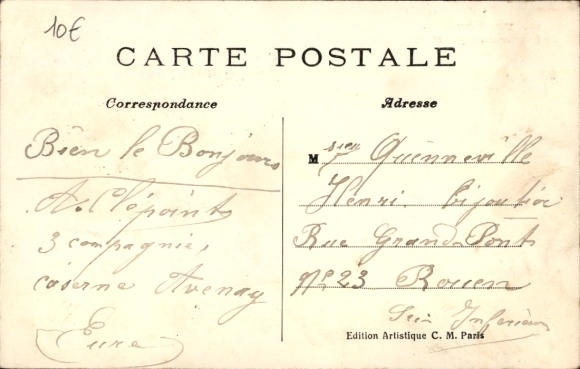 10€
CARTE POSTALE
Correspondance
Adresse
Bien le Bonjours
A. Clépoint
3 compagnie,
caserne Avenay
Eure
Msieur Quenneville
Henri bijoutier
Rue Grand-Pont
Nº 23 Rouen
Sein Inferieur
Edition Artistique C. M. Paris